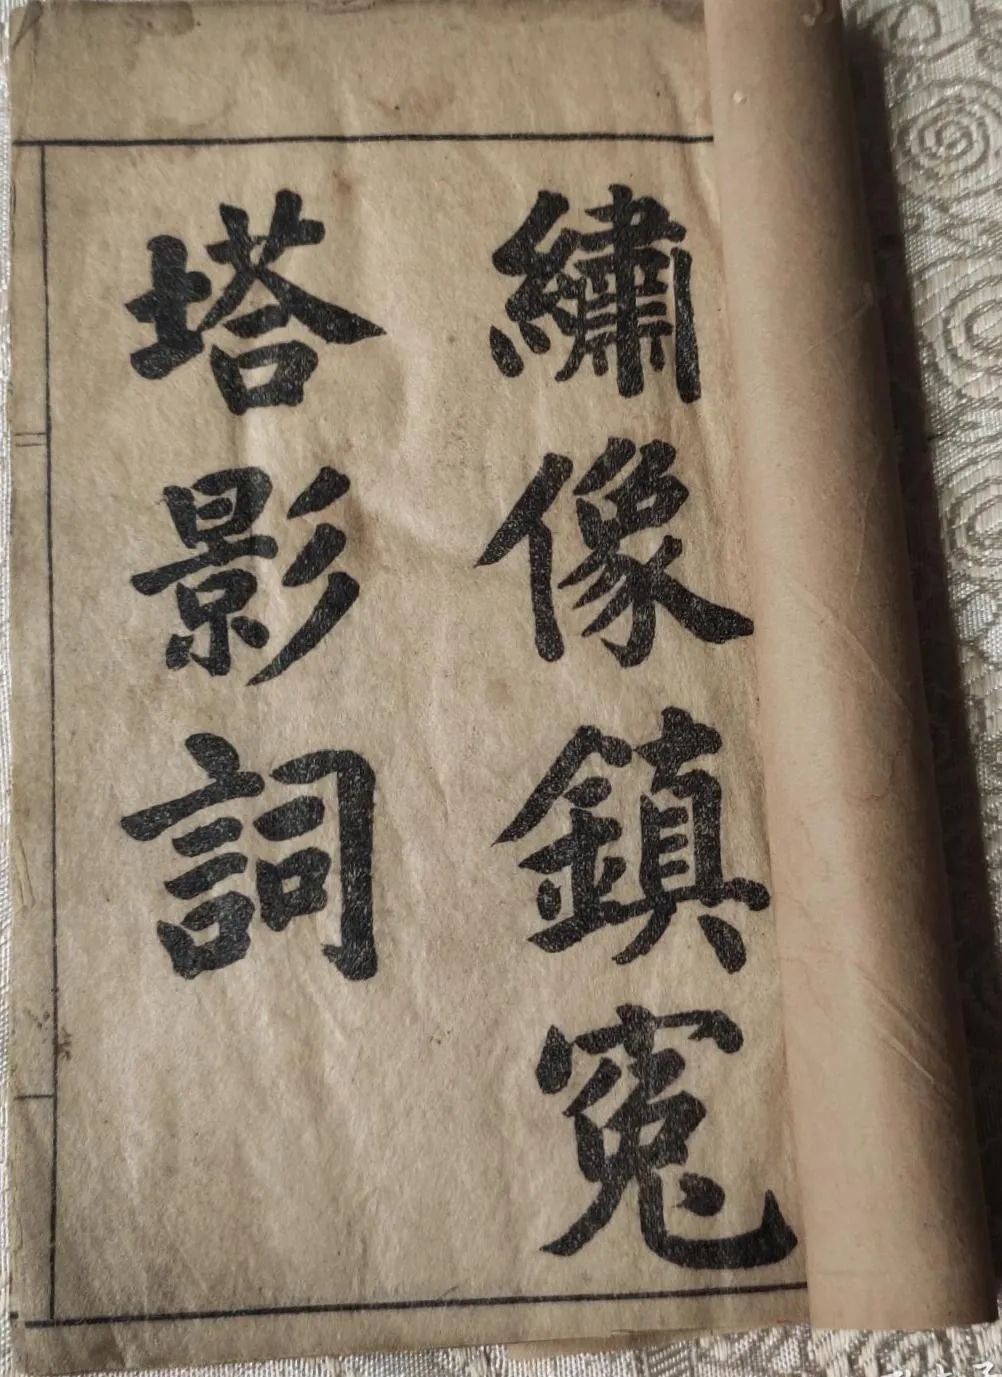 繡像鎮寃
塔影詞